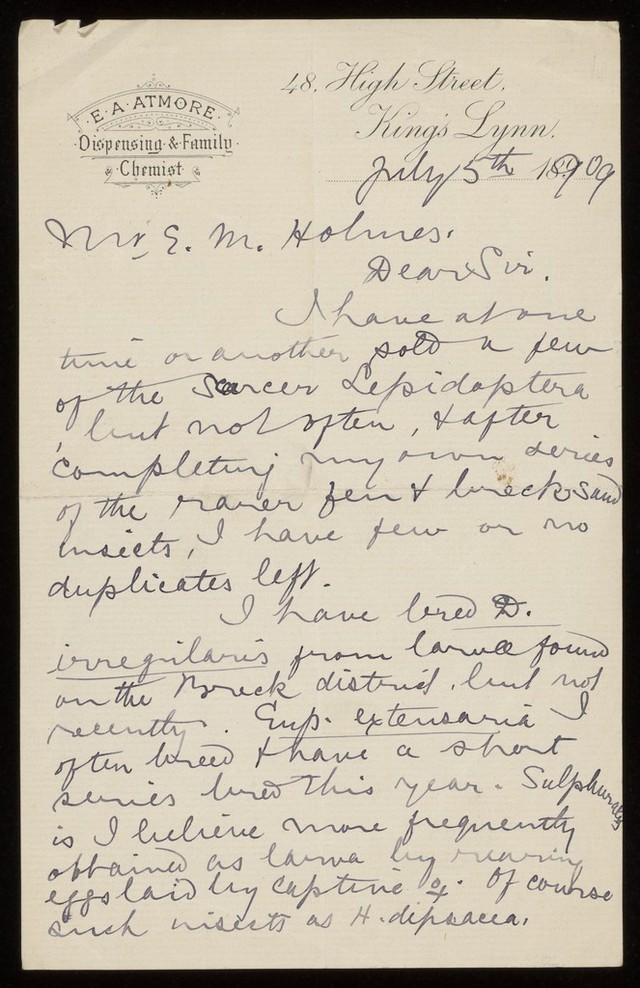 E. A. ATMORE.
Dispensing & Family
Chemist
48, High Street,
King's Lynn.
July 5th 1909
Mr. E. M. Holmes.
Dear Sir.
I have at one
time or another sold a few
of the scarcer Lepidoptera
, but not often, & after
completing my own series
of the rarer fen & breck-sand
insects, I have few or no
duplicates left.
I have bred D.
irregularis from larvae found
on the Breck district, but not
recently. Eup. extensaria I
often breed & have a short
series bred this year. Sulphuralis
is I believe more frequently
obtained as larva by rearing
eggs laid by captive ♀. Of course
such insects as H. dipsacea.